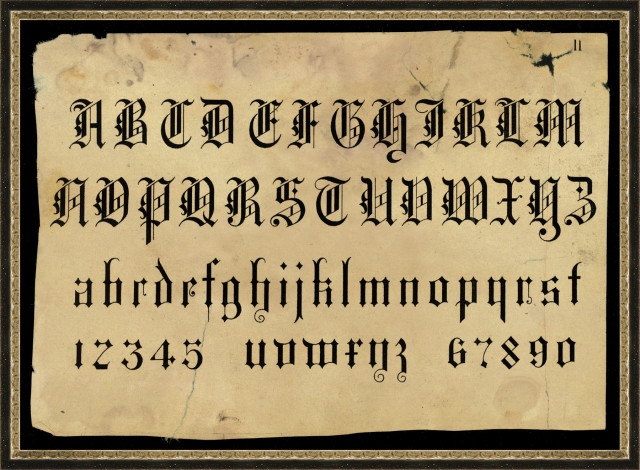 11
A B C D E F G H I K L M
N O P Q R S T U V W X Y Z
a b c d e f g h i j k l m n o p q r s t
1 2 3 4 5 u v w x y z 6 7 8 9 0